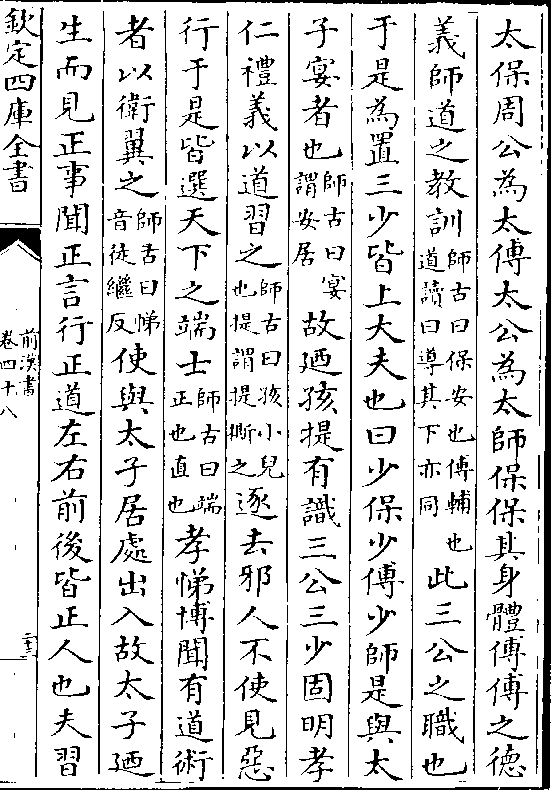 太保周公為太傅太公為太師保保其身體傅傅之德
義師道之教訓師古曰保安也傅輔也道讀曰導其下亦同此三公之職也
于是為置三少皆上大夫也曰少保少傅少師是與太
子宴者也師古曰宴謂安居故廼孩提有識三公三少固明孝
仁禮義以道習之師古曰孩小兒也提謂提撕之逐去邪人不使見惡
行于是皆選天下之端士師古曰端正也直也孝悌博聞有道術
者以衛翼之師古曰悌音徒繼反使與太子居處出入故太子廼
生而見正事聞正言行正道左右前後皆正人也夫習
欽定四庫全書
前漢書
卷四十八